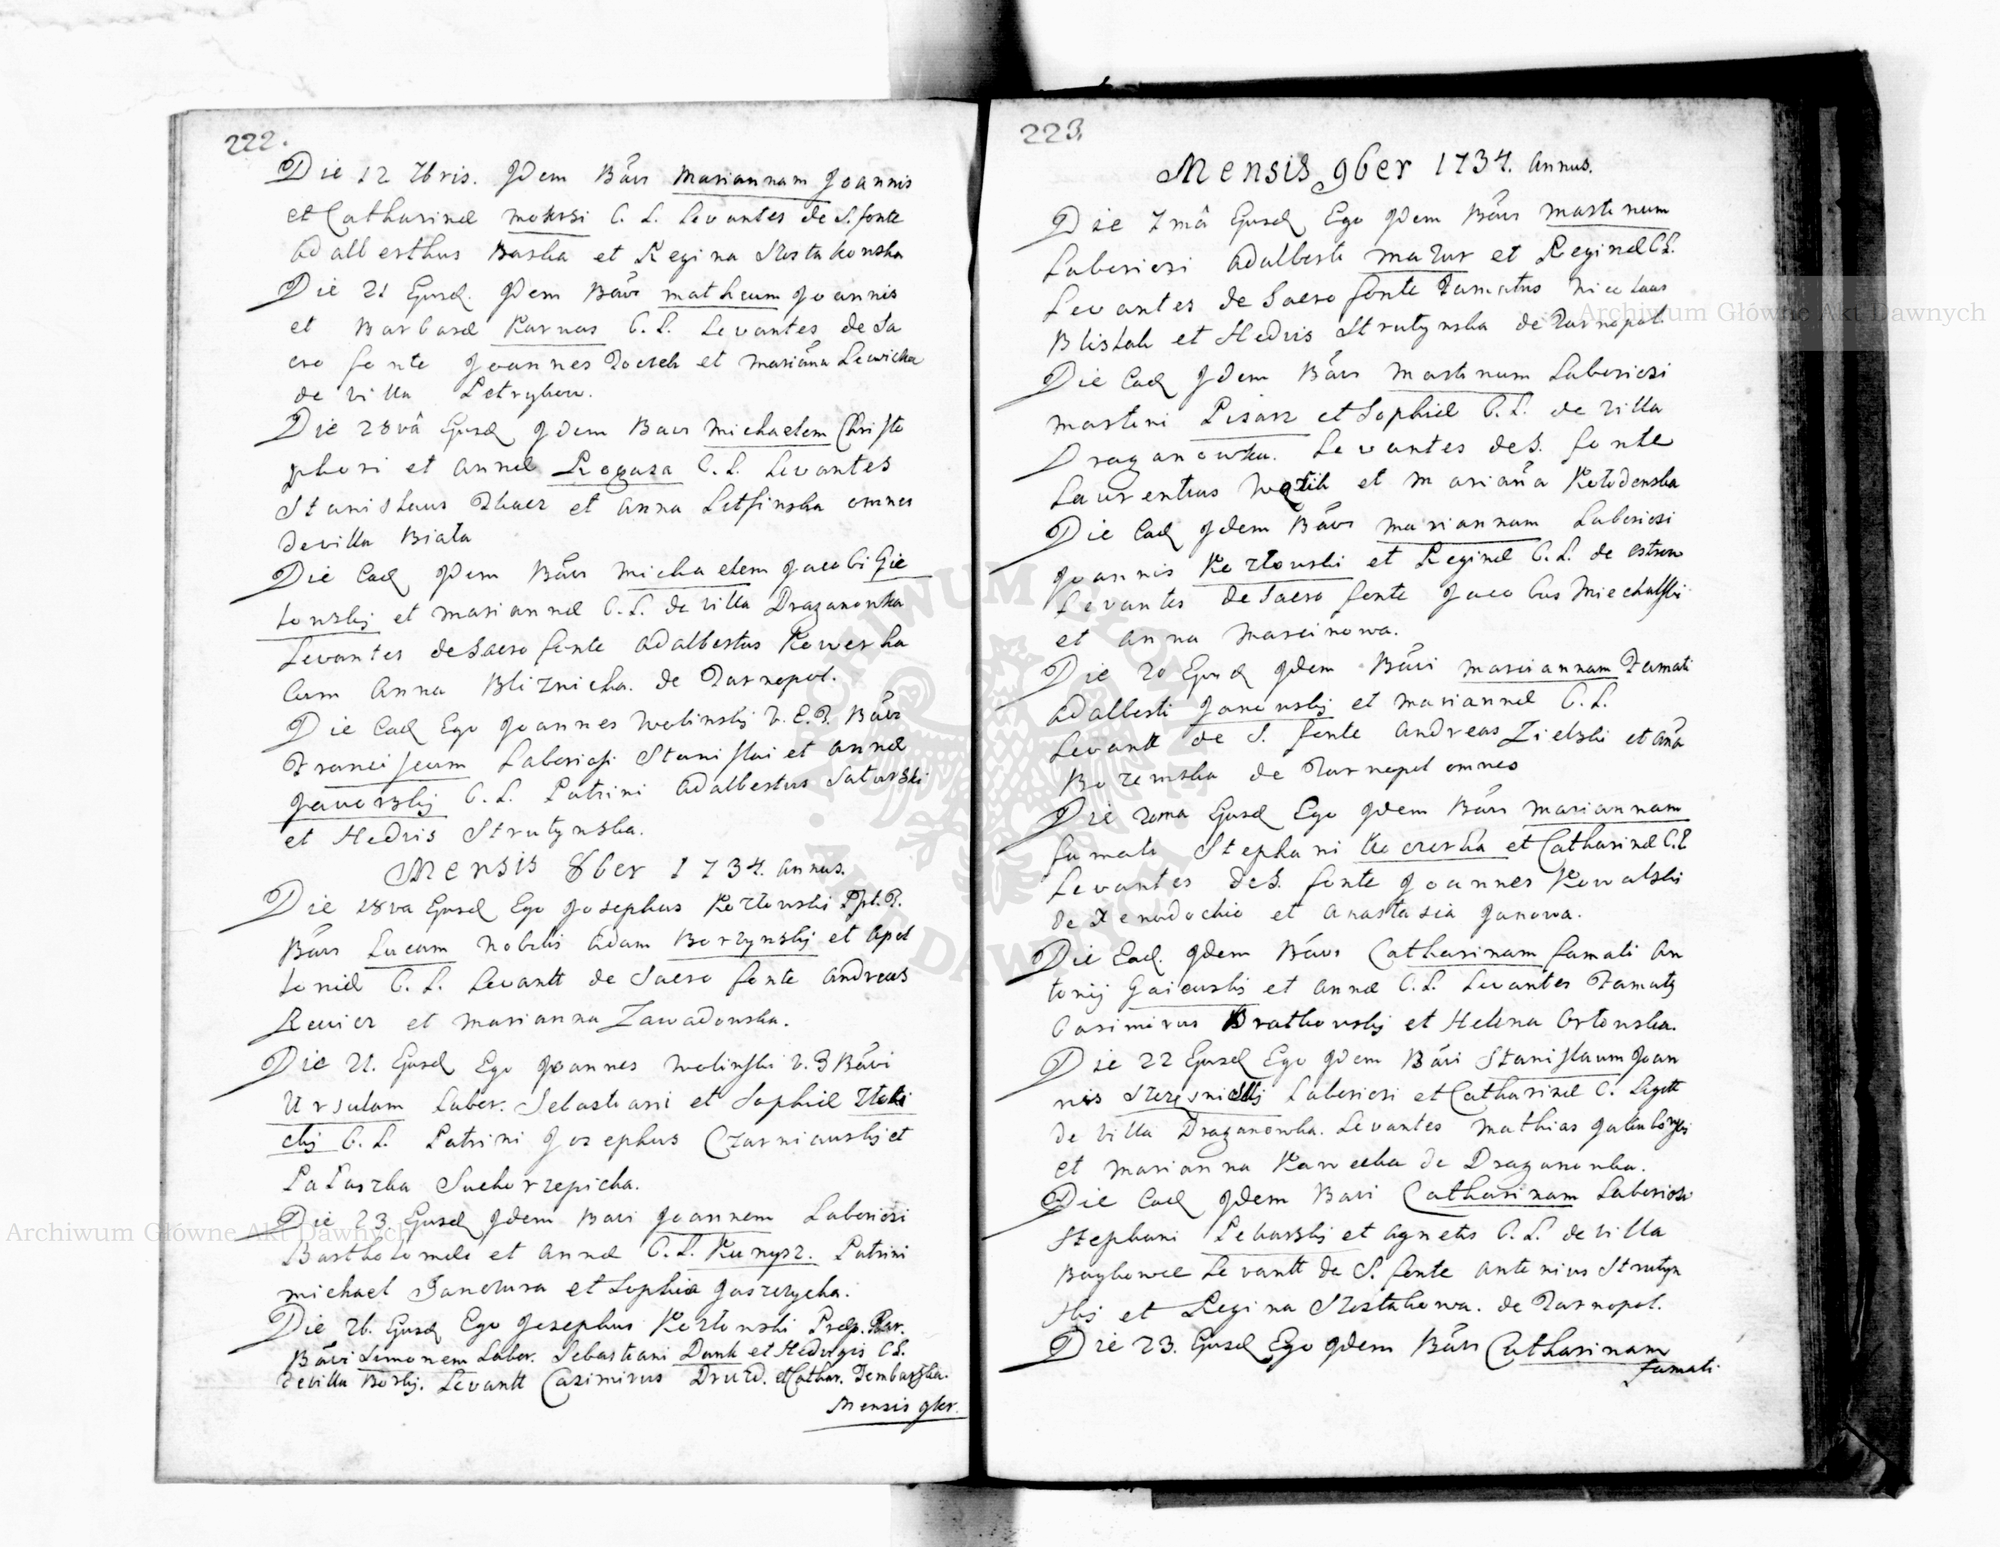 222.
Die 12 7bris. Jdem Bãvi Mariannam Joannis
et Catharinæ Mokrsi C. L. Levantes de S. fonte
Adalberthus Barska et Regina Szostakonska
Die 21 Ejusd. Jdem Bãvi Matheum Joannis
et Barbaræ Karnas C. L. Levantes de Sa
cro fonte Joannes et Mariãna Lewicka
de villa Petrykow.
Die 28vâ Ejusd Jdem Bavi Michaelem Christo
phori et Annæ Rogaza C. L. Levantes
Stanislaus Tkacz et Anna Letfinska omnes
de villa Biała
Die Ead Jdem Bãvi Michaelem Jacobi Gie
łonskij et Mariannæ C. L. de villa Draganowka
Levantes de Sacro fonte Adalbertus Kowerka
Cum Anna Bliznicka. de Tarnopol.
Die Ead Ego Joannes Wolinskij V. E. T. Bãvi
Franciscum Laboriosi Stanislai et Annæ
Jaworskij C. L. Patrini Adalbertus Saturski
et Hedvis Strutynska.
Mensis 8ber 1734. Annus.
Die 18va Ejusd Ego Josephus Kozłowski Ppt. T.
Bãvi Lucam Nobilis Adam Borzynskij et Apol
loniæ C. L. Levantt de Sacro fonte Andreas
Rewicz et Marianna Zawadowska.
Die 21. Ejusd Ego Joannes Wolinski V. Bãvi
Ursulam Labor. Sebastiani et Sophiæ Złoti
ckij C. L. Patrini Josephus Czarniawskij et
Palaszka Suchorzepicha.
Die 23. Ejusd Jdem Bavi Joannem Laboriosi
Bartholomæi et Annæ C. L. Kunysz. Patrini
Michael Janowura et Sophia Jaszczycha.
Die 26. Ejusd Ego Josephus Kozłonski Præp. Tar.
Bãvi Simonem Labor. Sebastiani Dunk et Hedvigis C L.
de villa Borkj. Levantt Casimirus Drozd. et Cathar. Dembarska.
Mensis 9ber.
223.
Mensis 9ber 1734. Annus.
Die 7mâ Ejusd Ego Jdem Bãvi Martinum
Laboriosi Adalberti Mazur et Reginæ C L.
Levantes de Sacro fonte Famatus Nicolaus
Blistak et Hedvis Strutynska de Tarnopol.
Die Ead Jdem Bãvi Martinum Laboriosi
Martini Pisarz et Sophiæ C. L. de villa
Draganowka. Levantes de S. fonte
Laurentius Woztik et Mariãna Kołodenska
Die Ead Jdem Bãvi Mariannam Laboriosi
Joannis Kozłowski et Reginæ C. L. de Ostrow
Levantes de Sacro fonte Jacobus Miechalski
et Anna Marcinowa.
Die 20 Ejusd Jdem Bãvi Mariannam Famati
Adalberti Janowskij et Mariannæ C. L.
Levantt de S. fonte Andreas Zielski et Aña
Bozemska de Tarnopol omnes
Die 20ma Ejusd Ego Jdem Bãvi Mariannam
famati Stephani Koczerka et Catharinæ C. L
Levantes de S. fonte Joannes Kowalski
de Xenodochio et Anastasia Janowa.
Die Ead. Jdem Bãvi Catharinam famati An
tonij Gaiewskij et Annæ C. L. Levantes Famatg
Casimirus Bratkowskij et Helena Orłonska.
Die 22 Ejusd Ego Jdem Bãvi Stanislaum Joan
nis Laboriosi et Catharinæ C. Legtt
de villa Draganowka. Levantes Mathias Jakubowski
et Marianna Kawecka de Draganowka.
Die Ead Jdem Bavi Catharinam Laboriosi
Stephani Pekarskij et Agnetis C. L. de villa
Baykowce Levantt de S. fonte Antonius Strutyn
skj et Regina Szostakowa. de Tarnopol.
Die 23. Ejusd Ego Jdem Bãvi Catharinam
famati
Archiwum Główne Akt Dawnych
Archiwum Główne Akt Dawnych
ARCHIWUM GŁÓWNE AKT DAWNYCH